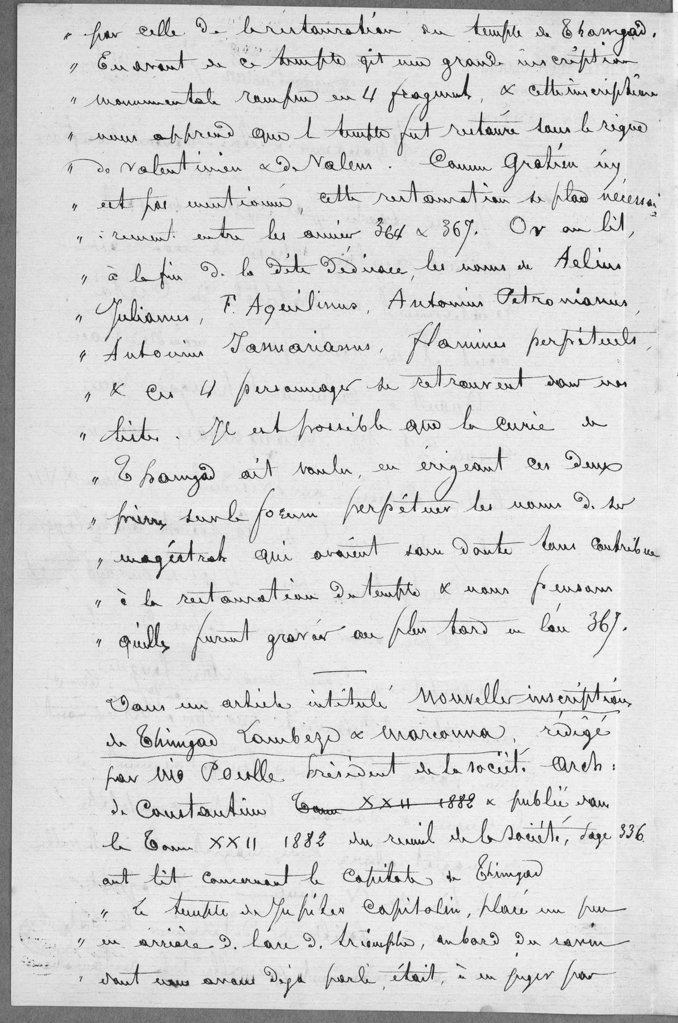 " par celle de la restauration du temple de Thamgad.
" En avant de ce temple git une grande inscription
" monumentale rompue en 4 fragments, & cette inscription
" nous apprend que le temple fut restauré sous le règne
" de Valentinien & de Valens. Comme Gratien n'y
" est pas mentionné, cette restauration se place nécessai
" :rement entre les années 364 & 367. Or on lit,
" à la fin de la dite Dédicace, les noms de Aelius
" Julianus, F. Aquilinus, Antonius Petronianus,
" Antonius Januarianus, flamines perpétuels,
" & ces 4 personnages se retrouvent dans nos
" listes. Il est possible que la curie de
" Thamgad ait voulu, en érigeant ces deux
" pierres sur le forum perpétuer les noms de ses
" magistrats qui avaient sans doute tous contribué
" à la restauration du temple & nous pensons
" qu'elles furent gravées au plus tard en l'an 367.
Dans un article intitulé Nouvelles inscriptions
de Thimgad Lambèze & Marcouna, rédigé
par Mr Poulle Président de la société Arch:
de Constantine Tome XXII 1882 & publié dans
le Tome XXII 1882 du recueil de la Société, page 336
on lit concernant le capitole de Thimgad
" Le temple de Jupiter Capitolin, placé un peu
" en arrière de l'arc de triomphe, au bord du ravin
" dont nous avons déjà parlé, était, à en juger par